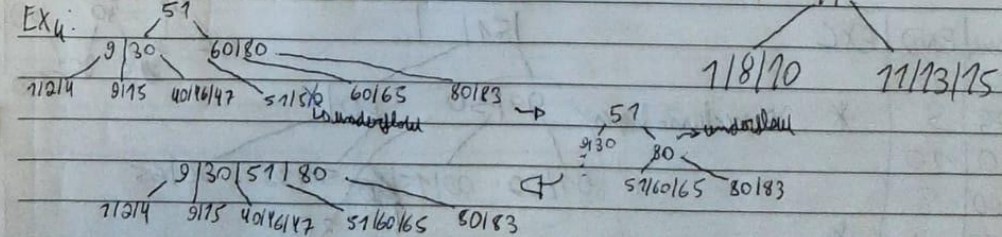 EX4: 51
9|30 60|80
1|2|4 9|15 40|46|47 51|52 60|65 80|83 →
↳ underflow
51 → underflow
9|30 80
51|60|65 80|83
9|30|51|80
1|2|4 9|15 40|46|47 51|60|65 80|83
11
1|8|10 11|13|15